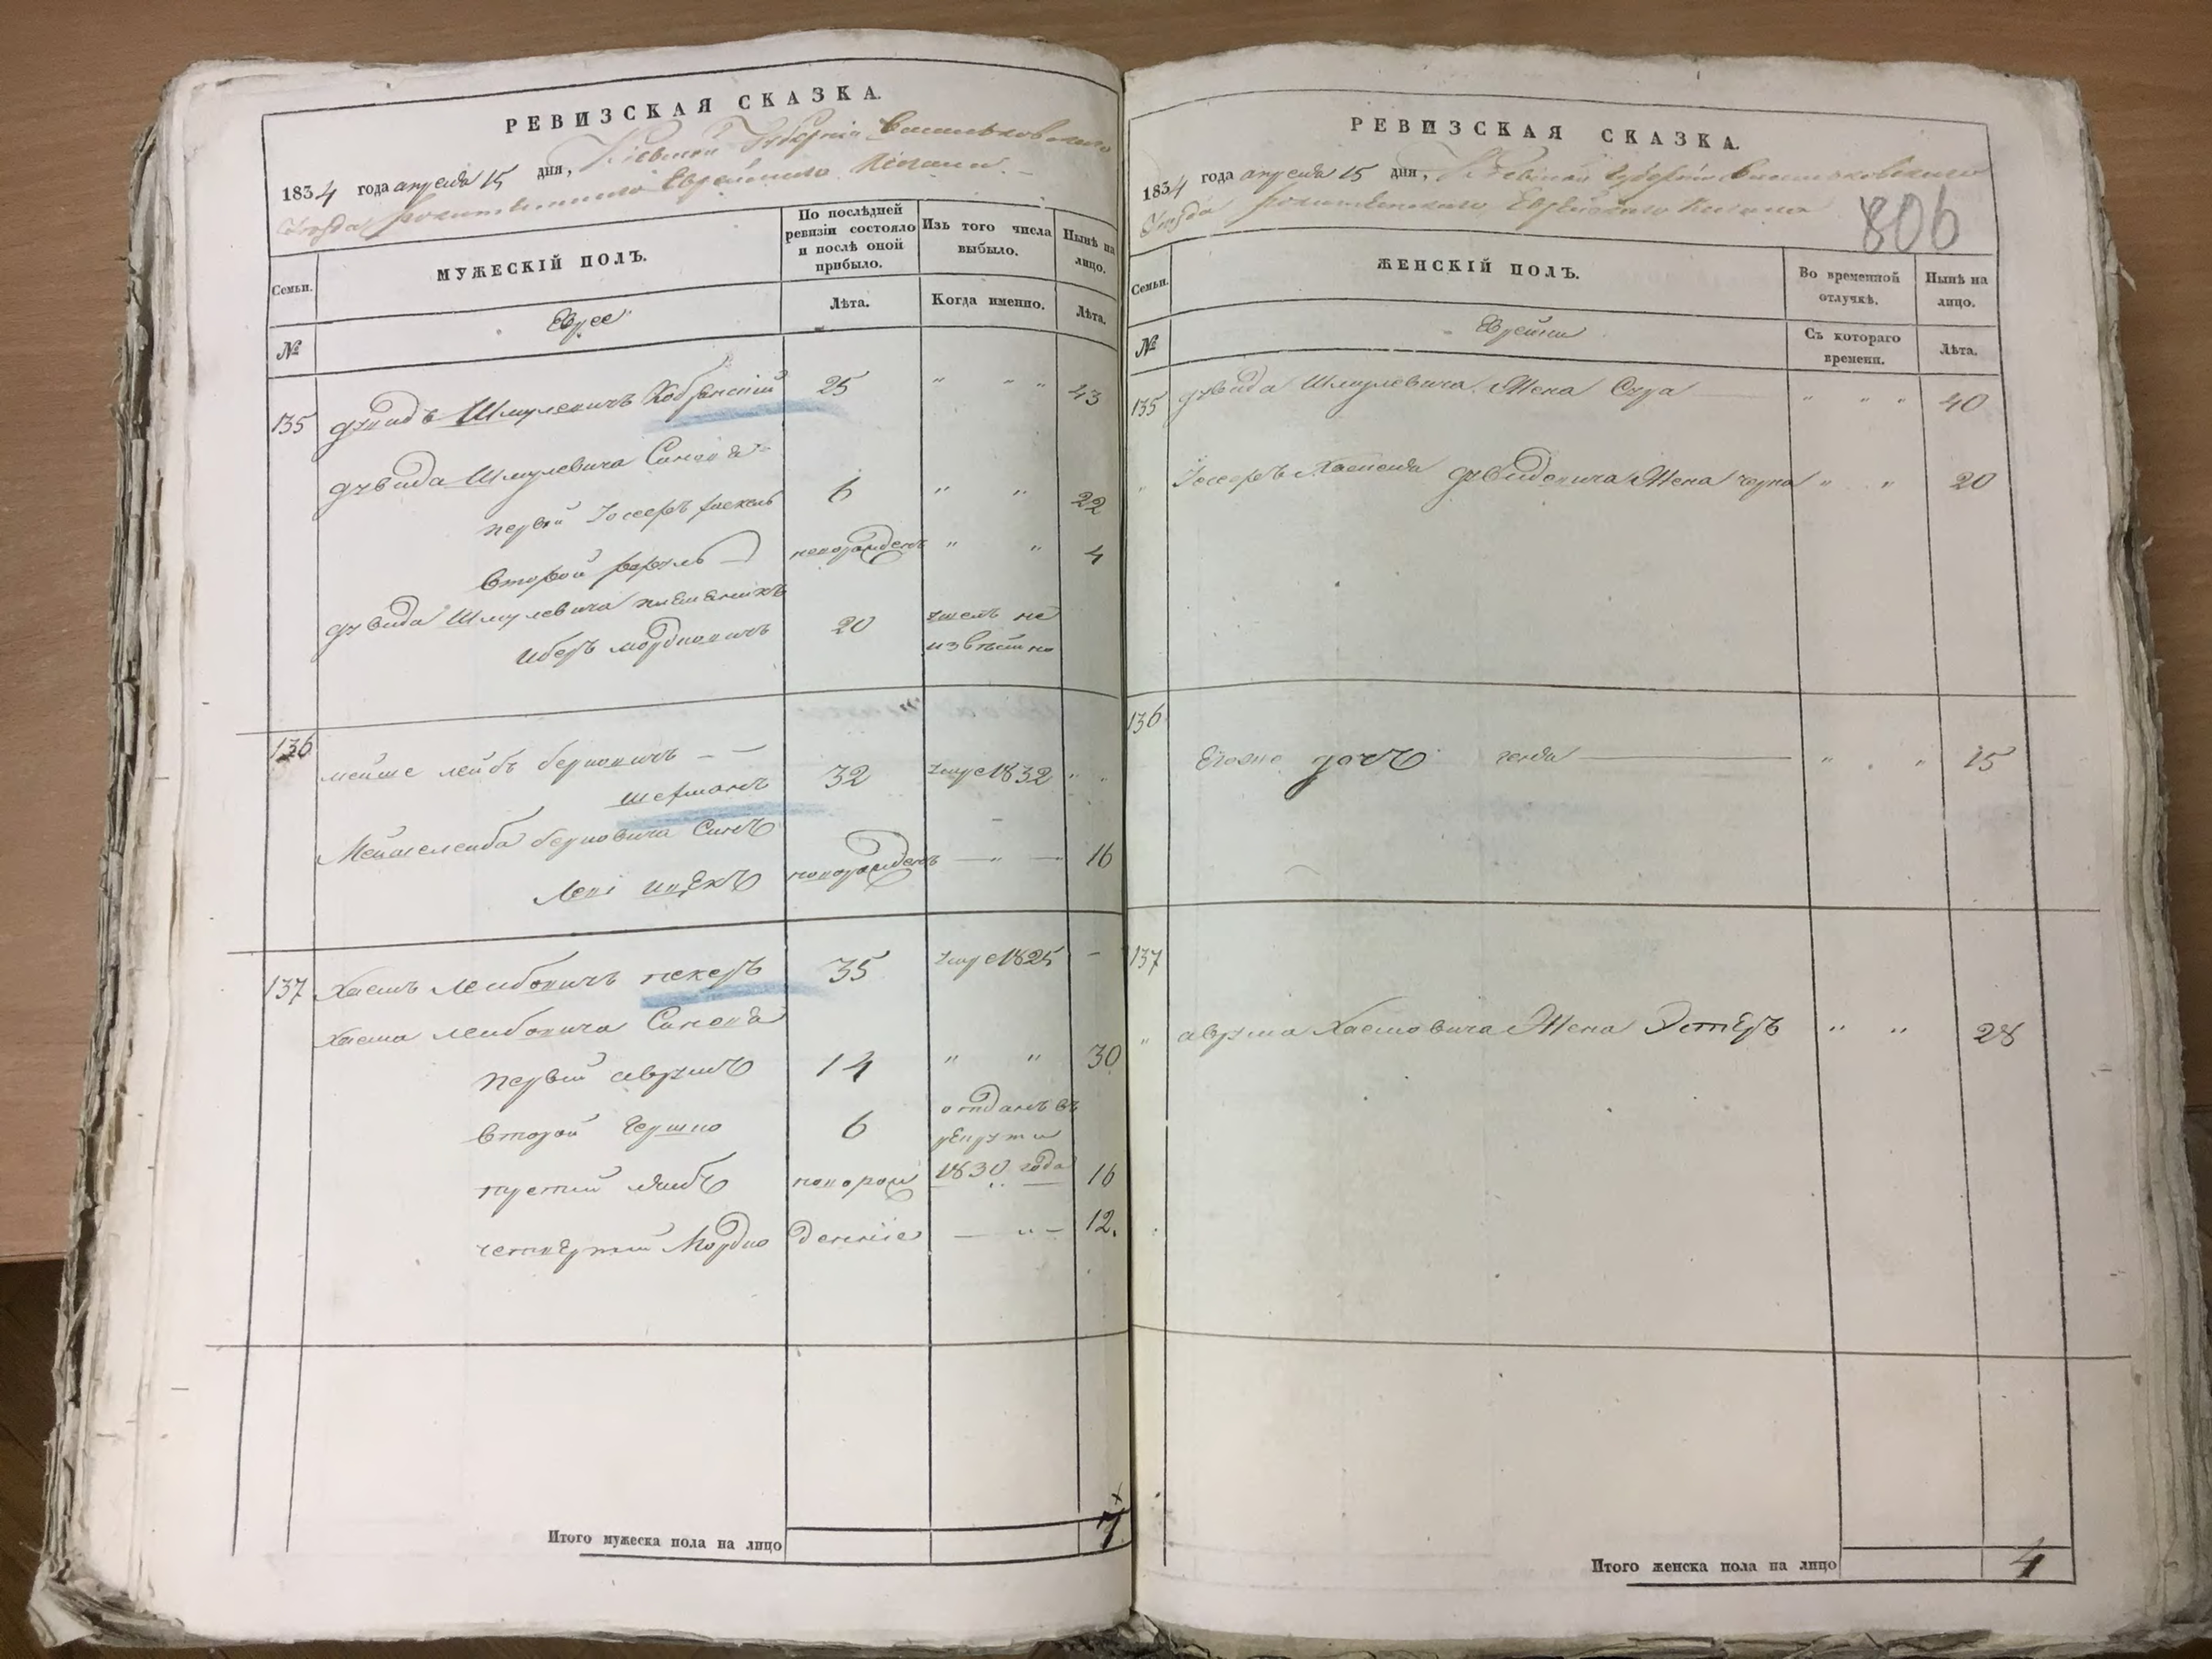 РЕВИЗСКАЯ СКАЗКА.
1834 года апреля 15 дня, Киевской Губернии Васильковского
Уезда Еврейского Кагала.
Семьи.
МУЖЕСКІЙ ПОЛЪ.
По послѣдней ревизіи состояло и послѣ оной прибыло.
Изъ того числа выбыло.
Нынѣ на лицо.
№
Евреe
Лѣта.
Когда именно.
Лѣта.
135 Дувидъ Шмулевичъ 25 " " " 43
Дувида Шмулевича Сыновья
первый Іосефъ 6 " " 22
второй новорожденъ " " 4
Дувида Шмулевича племенникъ
Мордковичъ 20 неизвѣстно
136 Мейше Лейбъ Берковичъ —
Шерманъ 32 умре 1832 " "
Мейшелейба Берковича Сынъ
Ицекъ новорожденъ — " — 16
137 Хаимъ Лейбовичъ пекеръ 35 умре 1825 —
Хаима Лейбовича Сыновья
первый аврумъ 14 " " 30
второй Гершко 6 отданъ въ рекруты
третий лейбъ новорож 1830 года 16
четвертый Мордко денніе — " — 12.
Итого мужеска пола на лицо 7
РЕВИЗСКАЯ СКАЗКА.
1834 года апреля 15 дня, Киевской Губернии Васильковского
Уезда Еврейского Кагала
806
Семьи.
ЖЕНСКІЙ ПОЛЪ.
Во временной отлучкѣ.
Нынѣ на лицо.
№
Еврейки
Съ котораго времени.
Лѣта.
135 Дувида Шмулевича Жена Сура " " " 40
" Іосефъ Хаскеля Дувидовича Жена черна " " 20
136
Его дочь " " 15
137
" аврума Хаимовича Жена Эстеръ " " 28
Итого женска пола на лицо 4